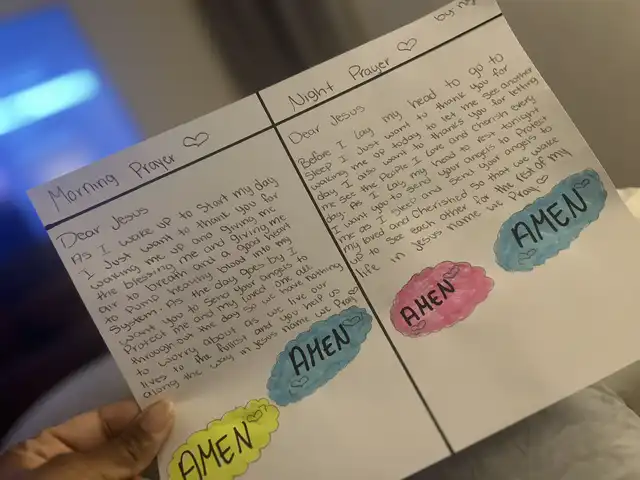 Morning Prayer ♡
Dear Jesus
As I wake up to start my day
I Just want to thank you for
waking me up and giving me
the blessing me and giving me
air to breath and a good heart
to pump healthy blood into my
System. As the day goes by I
want you to send your angels to
Protect me and my loved one all
through out the day so we have nothing
to worry about as we live our
lives to the fullest and you help us
along the way in Jesus name we Pray
AMEN
AMEN
by
Night Prayer ♡
Dear Jesus
Before I lay my head to go to
Sleep I Just want to thank you for
waking me up today to let me see another
day. I also want to thanks you for letting
me see the People I love and cherish every
day. As I lay my head to rest tonight
I want you to send your angels to Protect
me as I Sleep and Send your angels to
my loved and cherished So that we wake
up to see each other for the rest of my
life in Jesus name we Pray ♡
AMEN
AMEN